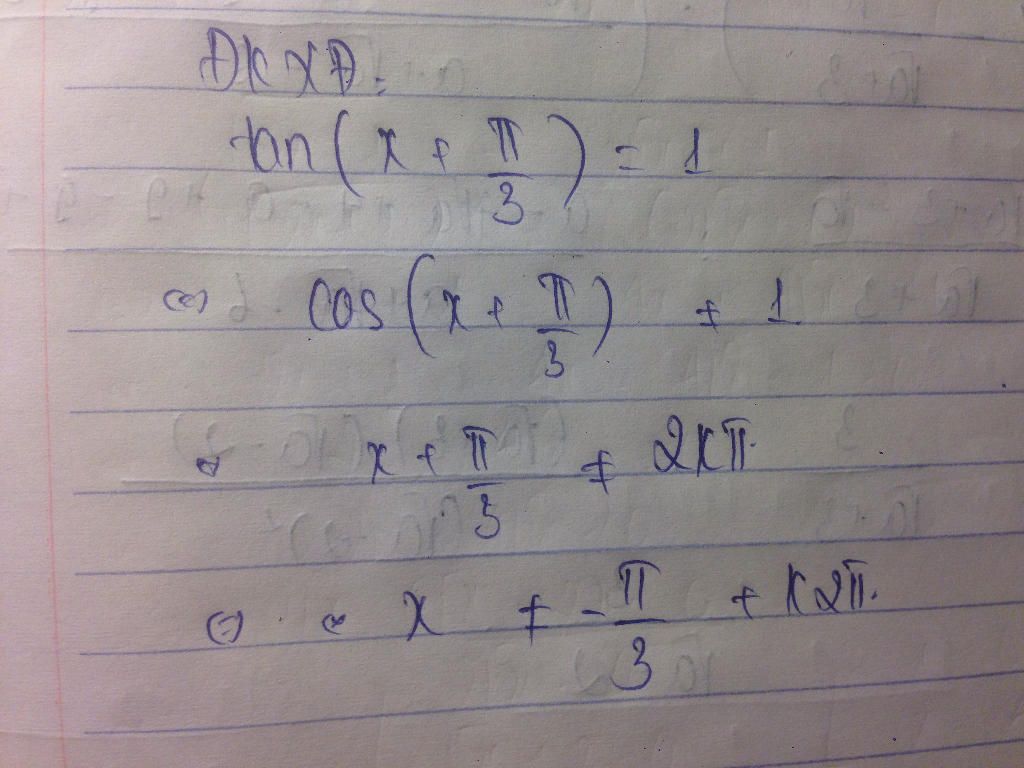 ĐKXĐ:
tan(x + π/3) = 1
⇔ cos(x + π/3) ≠ 1
⇔ x + π/3 ≠ 2kπ
⇔ x ≠ -π/3 + k2π.